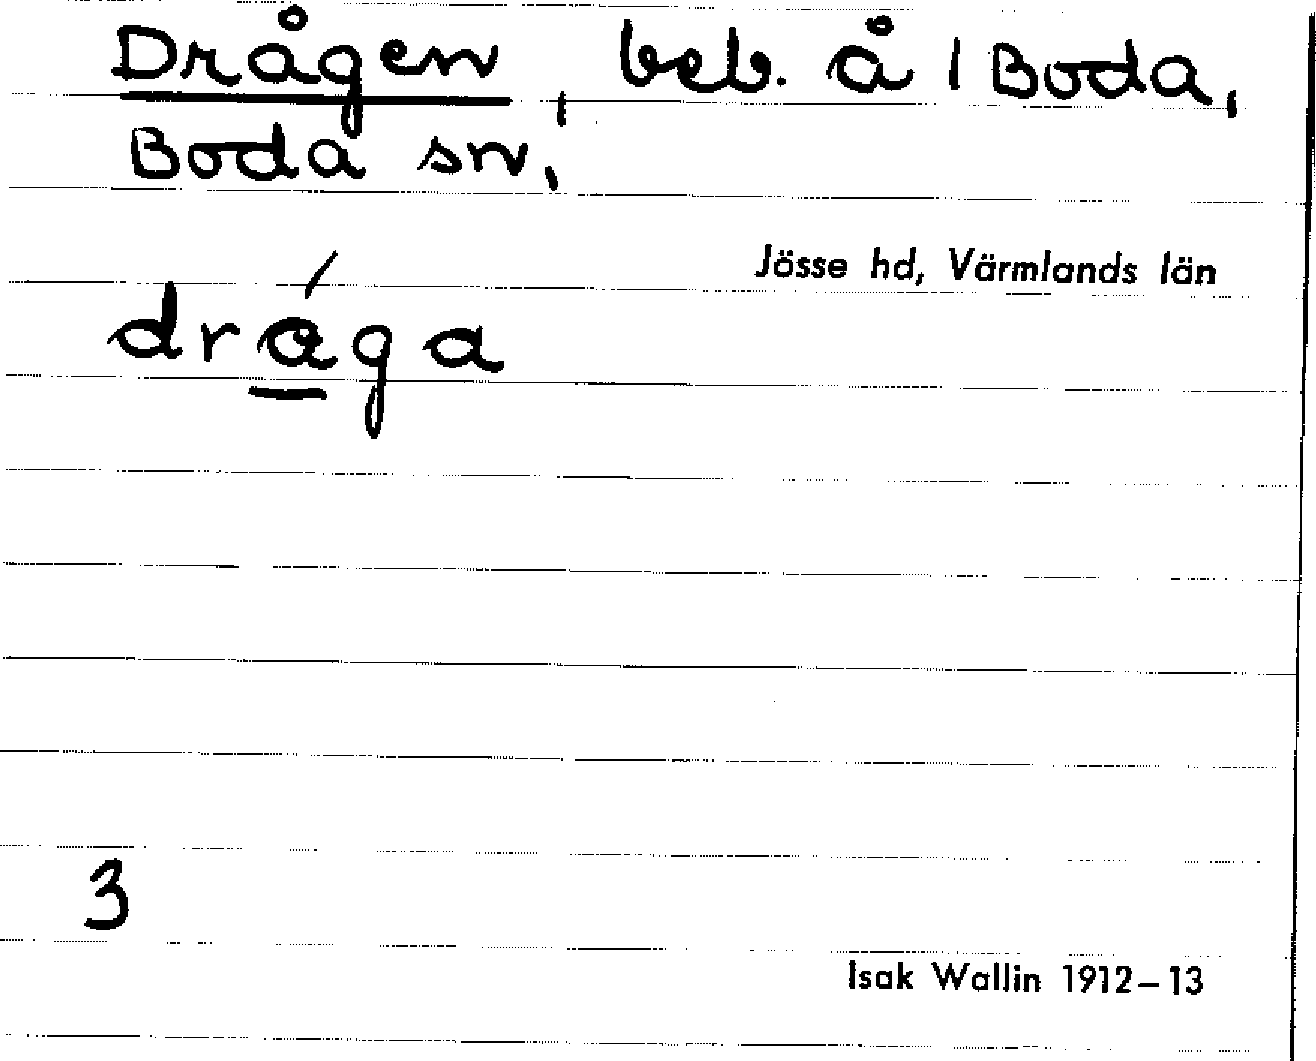 Drågen, beb. å 1 Boda,
Boda sn,
Jösse hd, Värmlands län
drá̱ga
3
Isak Wallin 1912–13